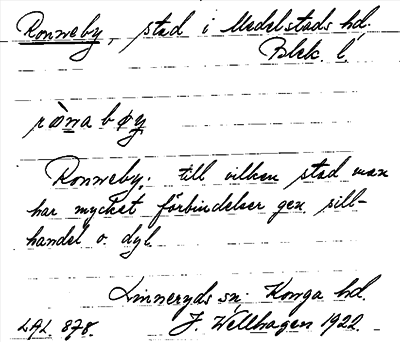 Ronneby, stad i Medelstads hd.
Blek. l.
rònabøy
Ronneby; till vilken stad man
har mycket förbindelser gen. sill-
handel o. dyl.
Linneryds sn; Konga hd.
LAL 878. J. Wellhagen 1922.